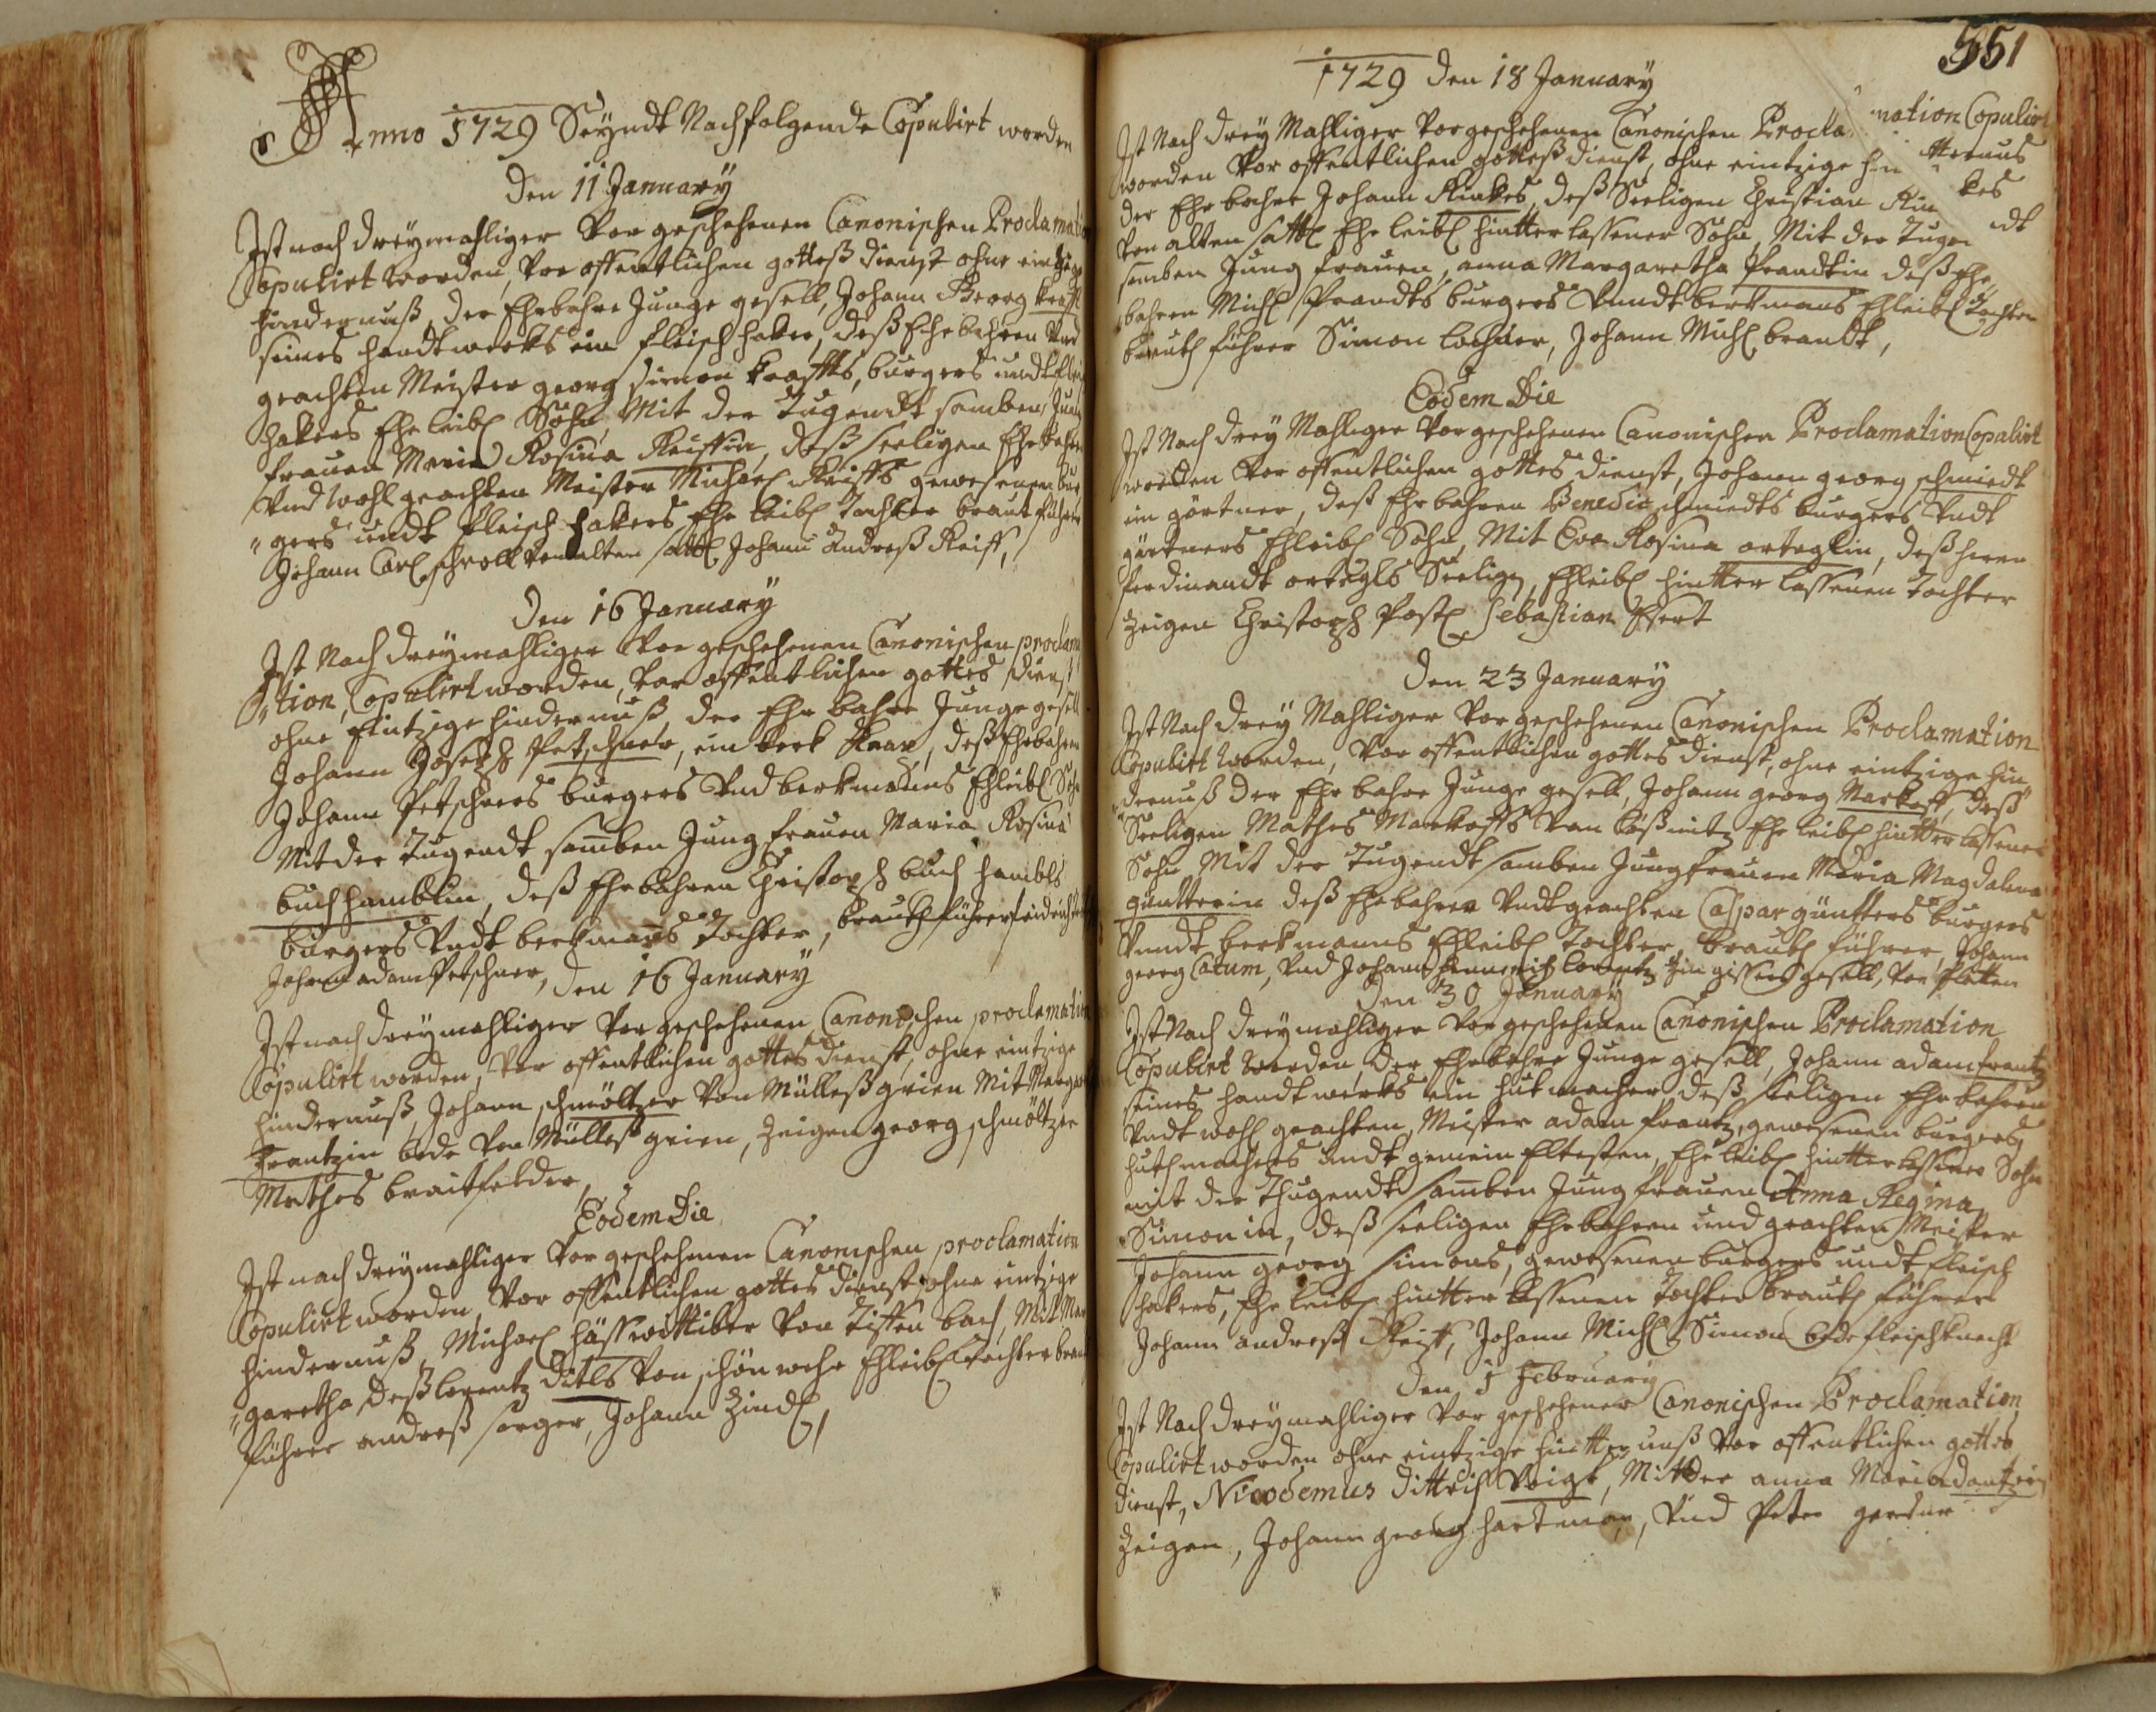 Anno 1729 Seyndt Nachfolgende Copulirt worden
Den 11 January
Ist nach dreymahliger Vor geschehenen Canonischen Proclamation
Copulirt Worden, Vor offentlichen gotteß dienst ohne eintzige
hindernuß, der Ehrbahre Junge gesell, Johann Georg Krafft
seines handtwerks ein fleischhaker, deß Ehrbahren Und
geachten Meister georg Simon Kraffts, burgers undt fleisch
hakers Ehe leibl Sohn, Mit der Tugendt samben Jung
frauen Maria Rosina Reiffin, deß seeligen Ehrbahren
Und Wohl geachten Meister Michael Reiffs gewesenen bur
"gers undt fleisch hakers Ehe leibl Tochter braut führer
Johann Carl schroll Von alten sattl Johann Andreß Reiff,
Den 16 January
Ist Nach dreymahliger Vor geschehenen Canonischen proclama
"tion, Copulirt worden, Vor offentlichen gottes dienst
ohne Eintzige hindernuß, der Ehr bahre Junge gesell
Johann Joseph Petschner, ein berk Knap, deß Ehrbahren
Johann Petschners burgers Und berkmanns Ehleibl Sohn
Mit der Tugendt samben Jungfrauen Maria Rosina
buchhamblin, deß Ehrbahren Christoph buch hambls
burgers Undt berkmans Tochter, brauth führer
Johann adam Petschner,
Den 16 January
Ist nach dreymahliger Vor geschehenen Canonischen proclamation
Copulirt worden, Vor offentlichen gottes dienst, ohne eintzige
hindernuß, Johann schmöltzer Von Mülleßgrien Mit Margar
Frantzin bede Von Mülleß grien, Zeigen georg schmöltzer
Mathes braitfelder,
Eodem Die
Ist nach dreymahliger Vor geschehenen Canonischen proclamation
Copulirt worden, Vor offentlichen gottes dienst, ohne eintzige
hindernuß, Michael häss wittiber Von Tiffen bach, Mit Mar
"garetha, deß lorentz ditls Von schön wehr Ehleibl Tochter brauth
führer andreß sorger, Johann Zindl
551
1729 Den 18 January
Ist Nach drey Mahliger Vor geschehenen Canonischen Proclamation Copulirt
worden Vor offentlichen gotteß dienst, ohne eintzige hinternus
der Ehr bahre Johann Rinkes, deß Seeligen Christian Rinkes
Von alten sattl Ehe leibl hintter lassener Sohn, Mit der Tugendt
samben Jung frauen, anna Margaretha Prandtin deß Ehr
bahren Michl Prandts burgers Unndt berkmans Ehleibl Tochter
brauth führer Simon lochner, Johann Michl brandt,
Eodem Die
Ist Nach drey Mahliger Vor geschehenen Canonischen Proclamation Copulirt
worden Vor offentlichen gottes dienst, Johann georg schmiedt
ein gärtner, deß Ehrbahren Benedict schmiedts burgers Undt
gärtners Ehleibl Sohn, Mit Eva Rosina orteglin, deß herrn
Ferdinandt ortegls Seelig, Ehleibl hintter lassenen Tochter
Zeigen Christoph Postl Sebastian Ehert
Den 23 January
Ist Nach drey Mahliger Vor geschehenen Canonischen Proclamation
Copulirt Worden, Vor offentlichen gottes dienst, ohne eintzige hin
dernuß der Ehr bahre Junge gesell, Johann georg Markoff, deß
Seeligen Mathes Markoffs Von lößnitz Ehe leibl hintter lassener
Sohn Mit der Tugendt samben Jungfrauen Maria Magdalena
güntterin deß Ehrbahren Undt geachten Caspar güntters burgers
Unndt berkmanns Ehleibl Tochter, brauth führer, Johann
georg Catum, Und Johann Heinrich lorentz Zin gisser gesell, Von Platten
Den 30 January
Ist Nach dreymahliger Vor geschehenen Canonischen Proclamation
Copulirt Worden, der Ehrbahre Junge gesell, Johann adam frantz
seines handtwerks ein hutmacher deß seeligen Ehrbahren
Undt wohl geachten Meister adam frantz, gewesenen burgers
huthmachers undt gemein Eltesten, Ehe leibl hintterlassener Sohn
mit der Thugendt samben Jung frauen Anna Regina
Simonin, deß seeligen Ehrbahren und geachten Meister
Johann georg simons, gewesenen burgers undt fleisch
hakers, Ehe leibl hintter lassenen Tochter brauth führer
Johann andreß Reiff, Johann Michl Simon bede fleischknecht
Den 1 February
Ist Nach dreymahliger Vor geschehener Canonischen Proclamation
Copulirt worden ohne eintzige hintternuß Vor offentlichen gottes
dienst, Nicodemus dittrich Voigt, Mit der anna Maria dantzerin
Zeigen, Johann georg hartman, Und Peter gerdner